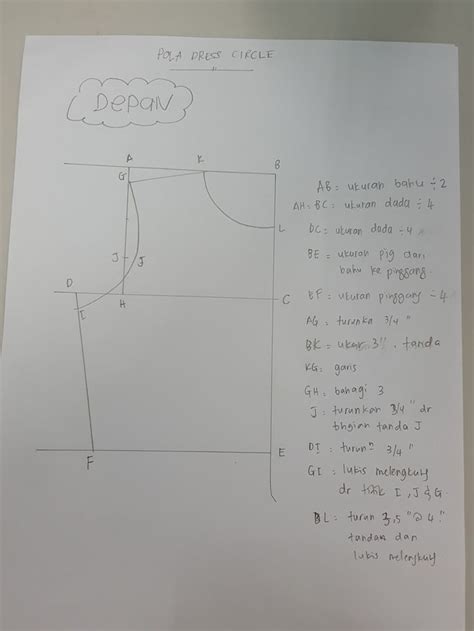 POLA DRESS CIRCLE
DEPAN
A K B
G
L
J J
D H C
I
F E
AB = ukuran bahu ÷ 2
AH = BC = ukuran dada ÷ 4
DC = ukuran dada ÷ 4
BE = ukuran pjg dari
bahu ke pinggang.
BF = ukuran pinggang ÷ 4
AG = turunka 3/4 "
BK = ukur 3", tanda
KG = garis
GH = bahagi 3
J = turunkan 3/4" dr
bhgian tanda J
DI = turun 3/4"
GI = lukis melengkung
dr titik I, J & G.
BL = turun 3,5" @ 4"
tandan dan
lukis melengkung